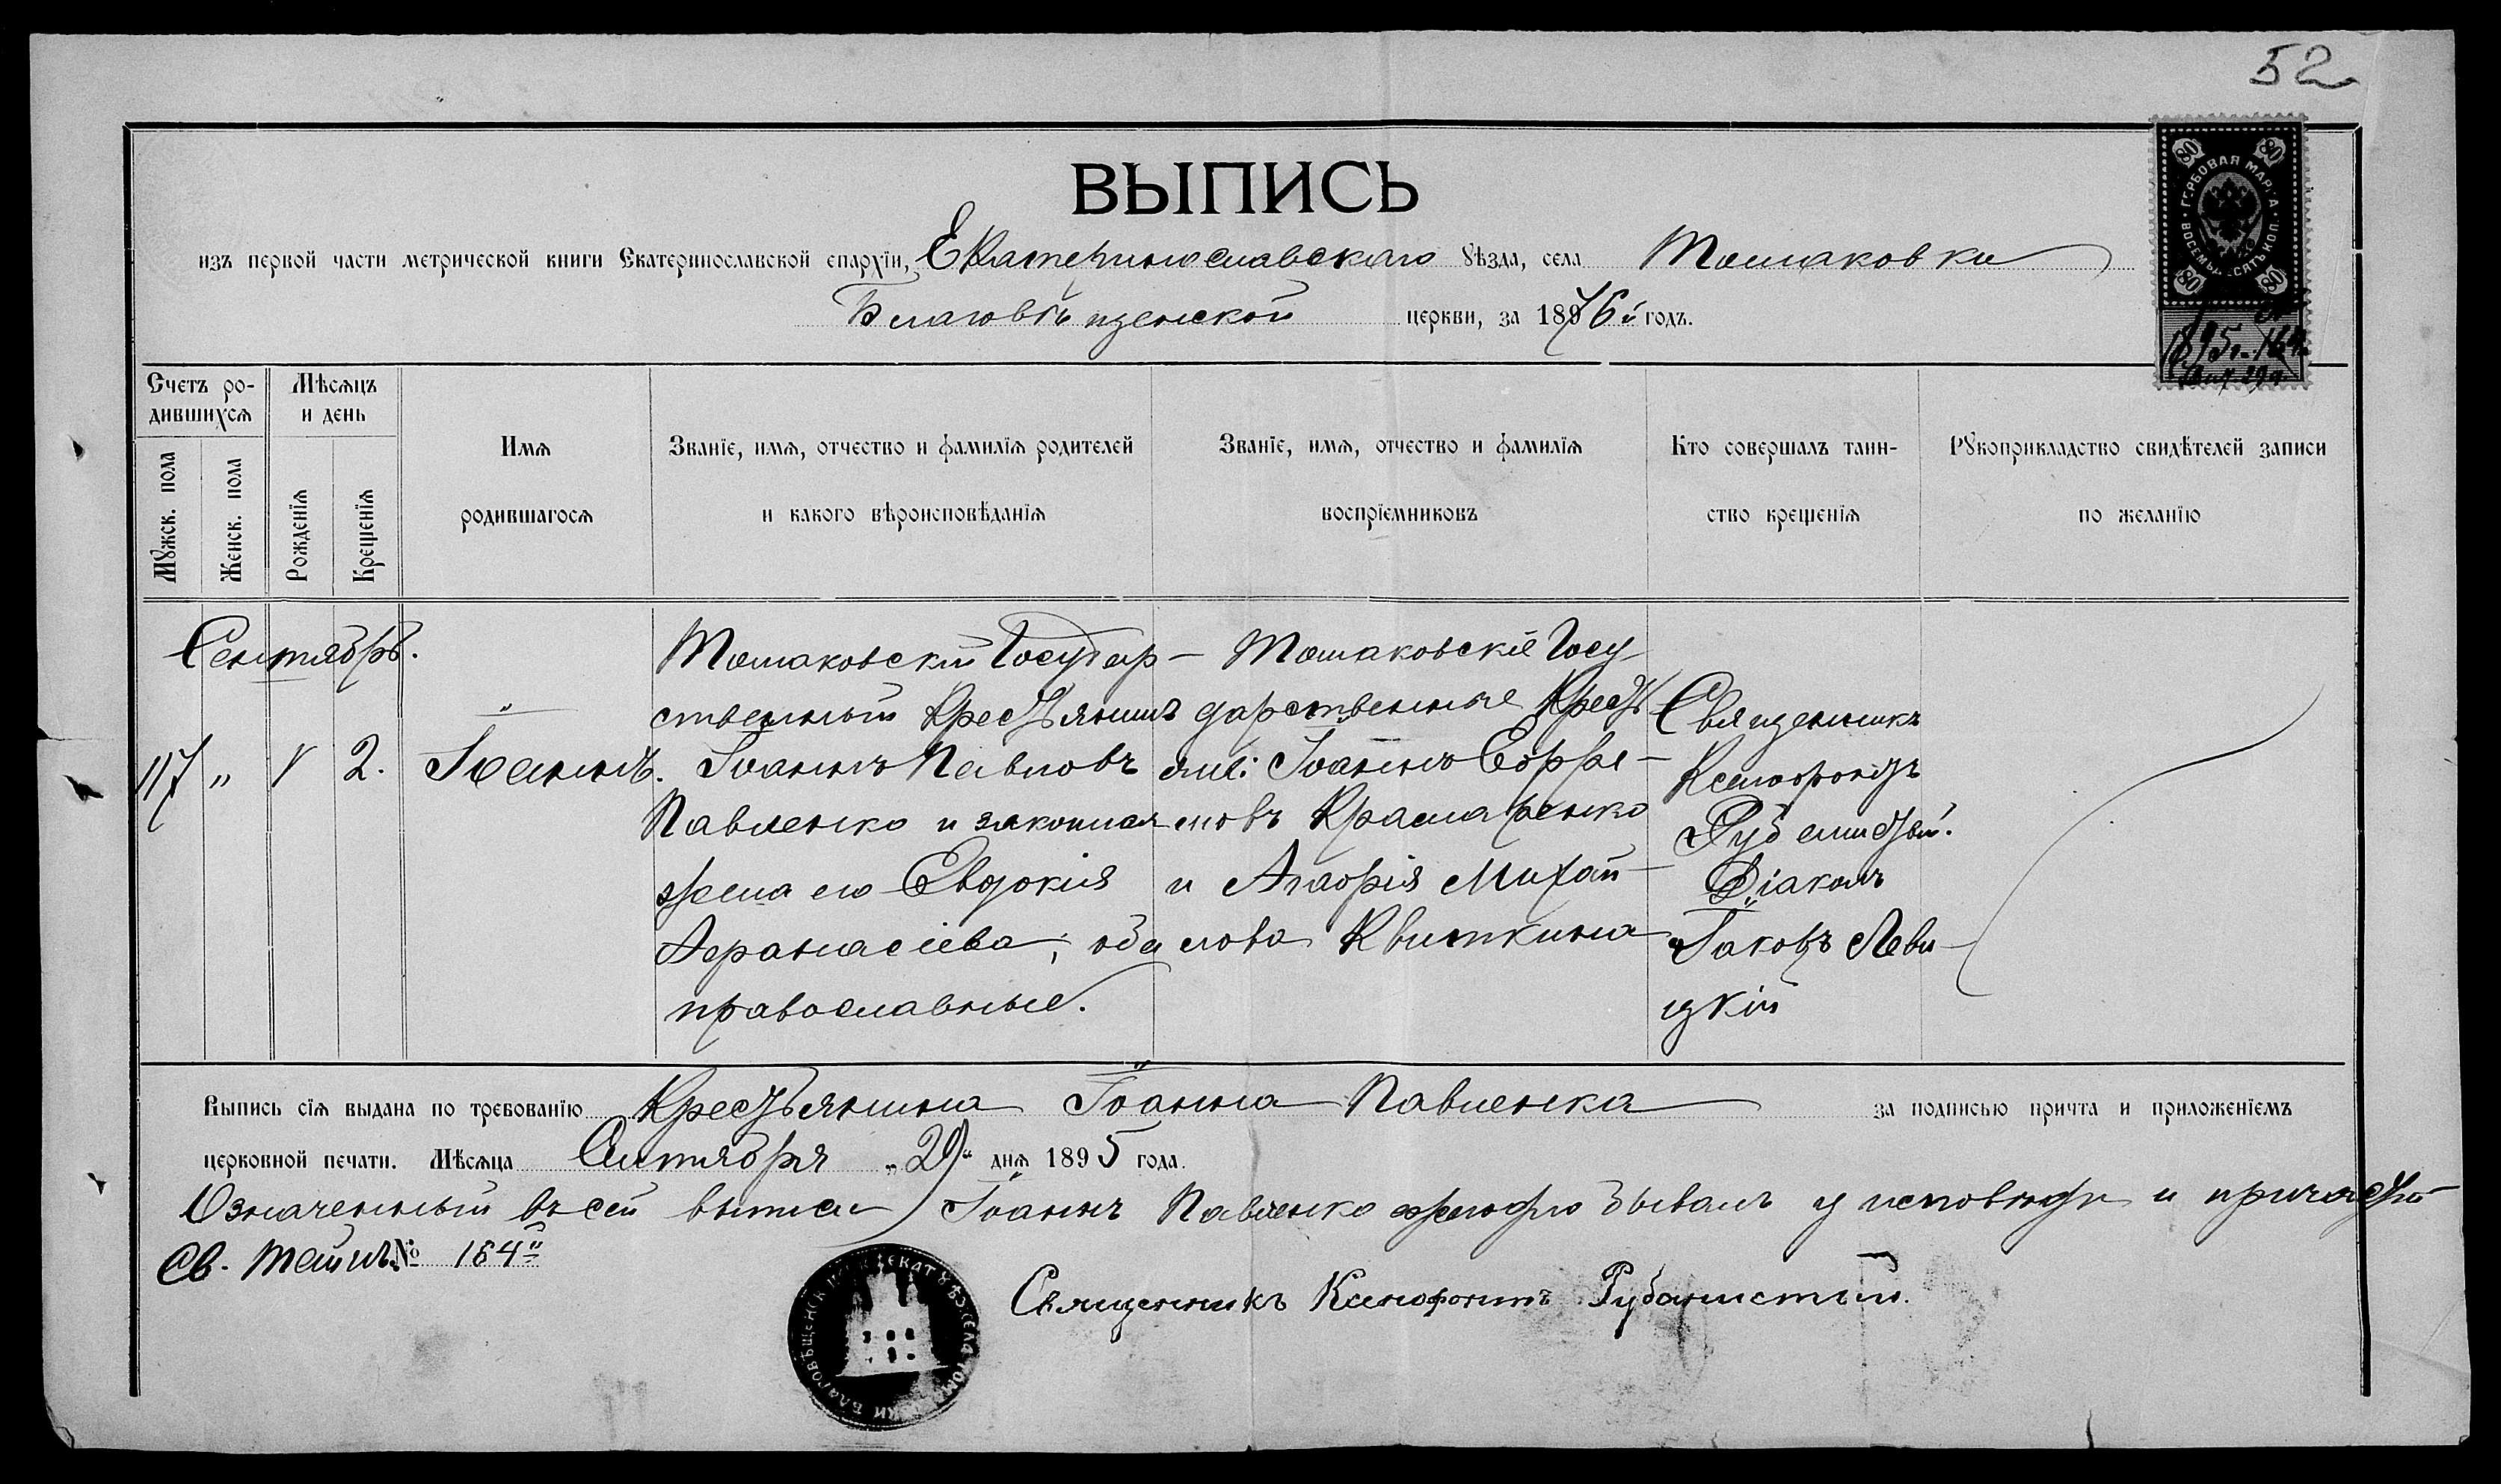 52
ВЫПИСЬ
изъ первой части метрической книги Екатеринославской епархіи, Екатеринославскаго уѣзда, села Томаковки
Благовѣщенской церкви, за 1876й годъ.
ГЕРБОВАЯ МАРКА ВОСЕМЬДЕСЯТЪ КОП.
80 80
80 80
1895 г. 164
29
Счетъ ро-
дившихся
Мужск. пола
Женск. пола
Мѣсяцъ
и день
Рожденія
Крещенія
Имя
родившагося
Званіе, имя, отчество и фамилія родителей
и какого вѣроисповѣданія
Званіе, имя, отчество и фамилія
воспріемниковъ
Кто совершалъ таин-
ство крещенія
Рукоприкладство свидѣтелей записи
по желанію
Сентябрь.
117 " 1 2.
Іоаннъ.
Томаковскій Государ-
ственный Крестьянинъ
Іоаннъ Павловъ
Павленко и законная
жена его Евдокія
Афанасіева; оба
православные.
Томаковскіе Госу
дарственные Кресть
яне: Іоаннъ Ефре-
мовъ Красnаренко
и Агафія Михай-
лова Квиткина
Священникъ
Ксенофонтъ
Рубанистый.
Діаконъ
Іаковъ Леви-
цкій
Выпись сія выдана по требованію Крестьянина Іоанна Павленка за подписью причта и приложеніемъ
церковной печати. Мѣсяца Сентября „29" дня 1895 года.
Означенный въ сей выписи Іоаннъ Павленко ежегодно бывалъ у исповѣди и причастія
Св. Таинъ. № 164й
Священникъ Ксенофонтъ Рубанистый.
БЛАГОВѢЩЕНСК ЕКАТ УѢЗ СЕЛА ТОМАКОВКИ